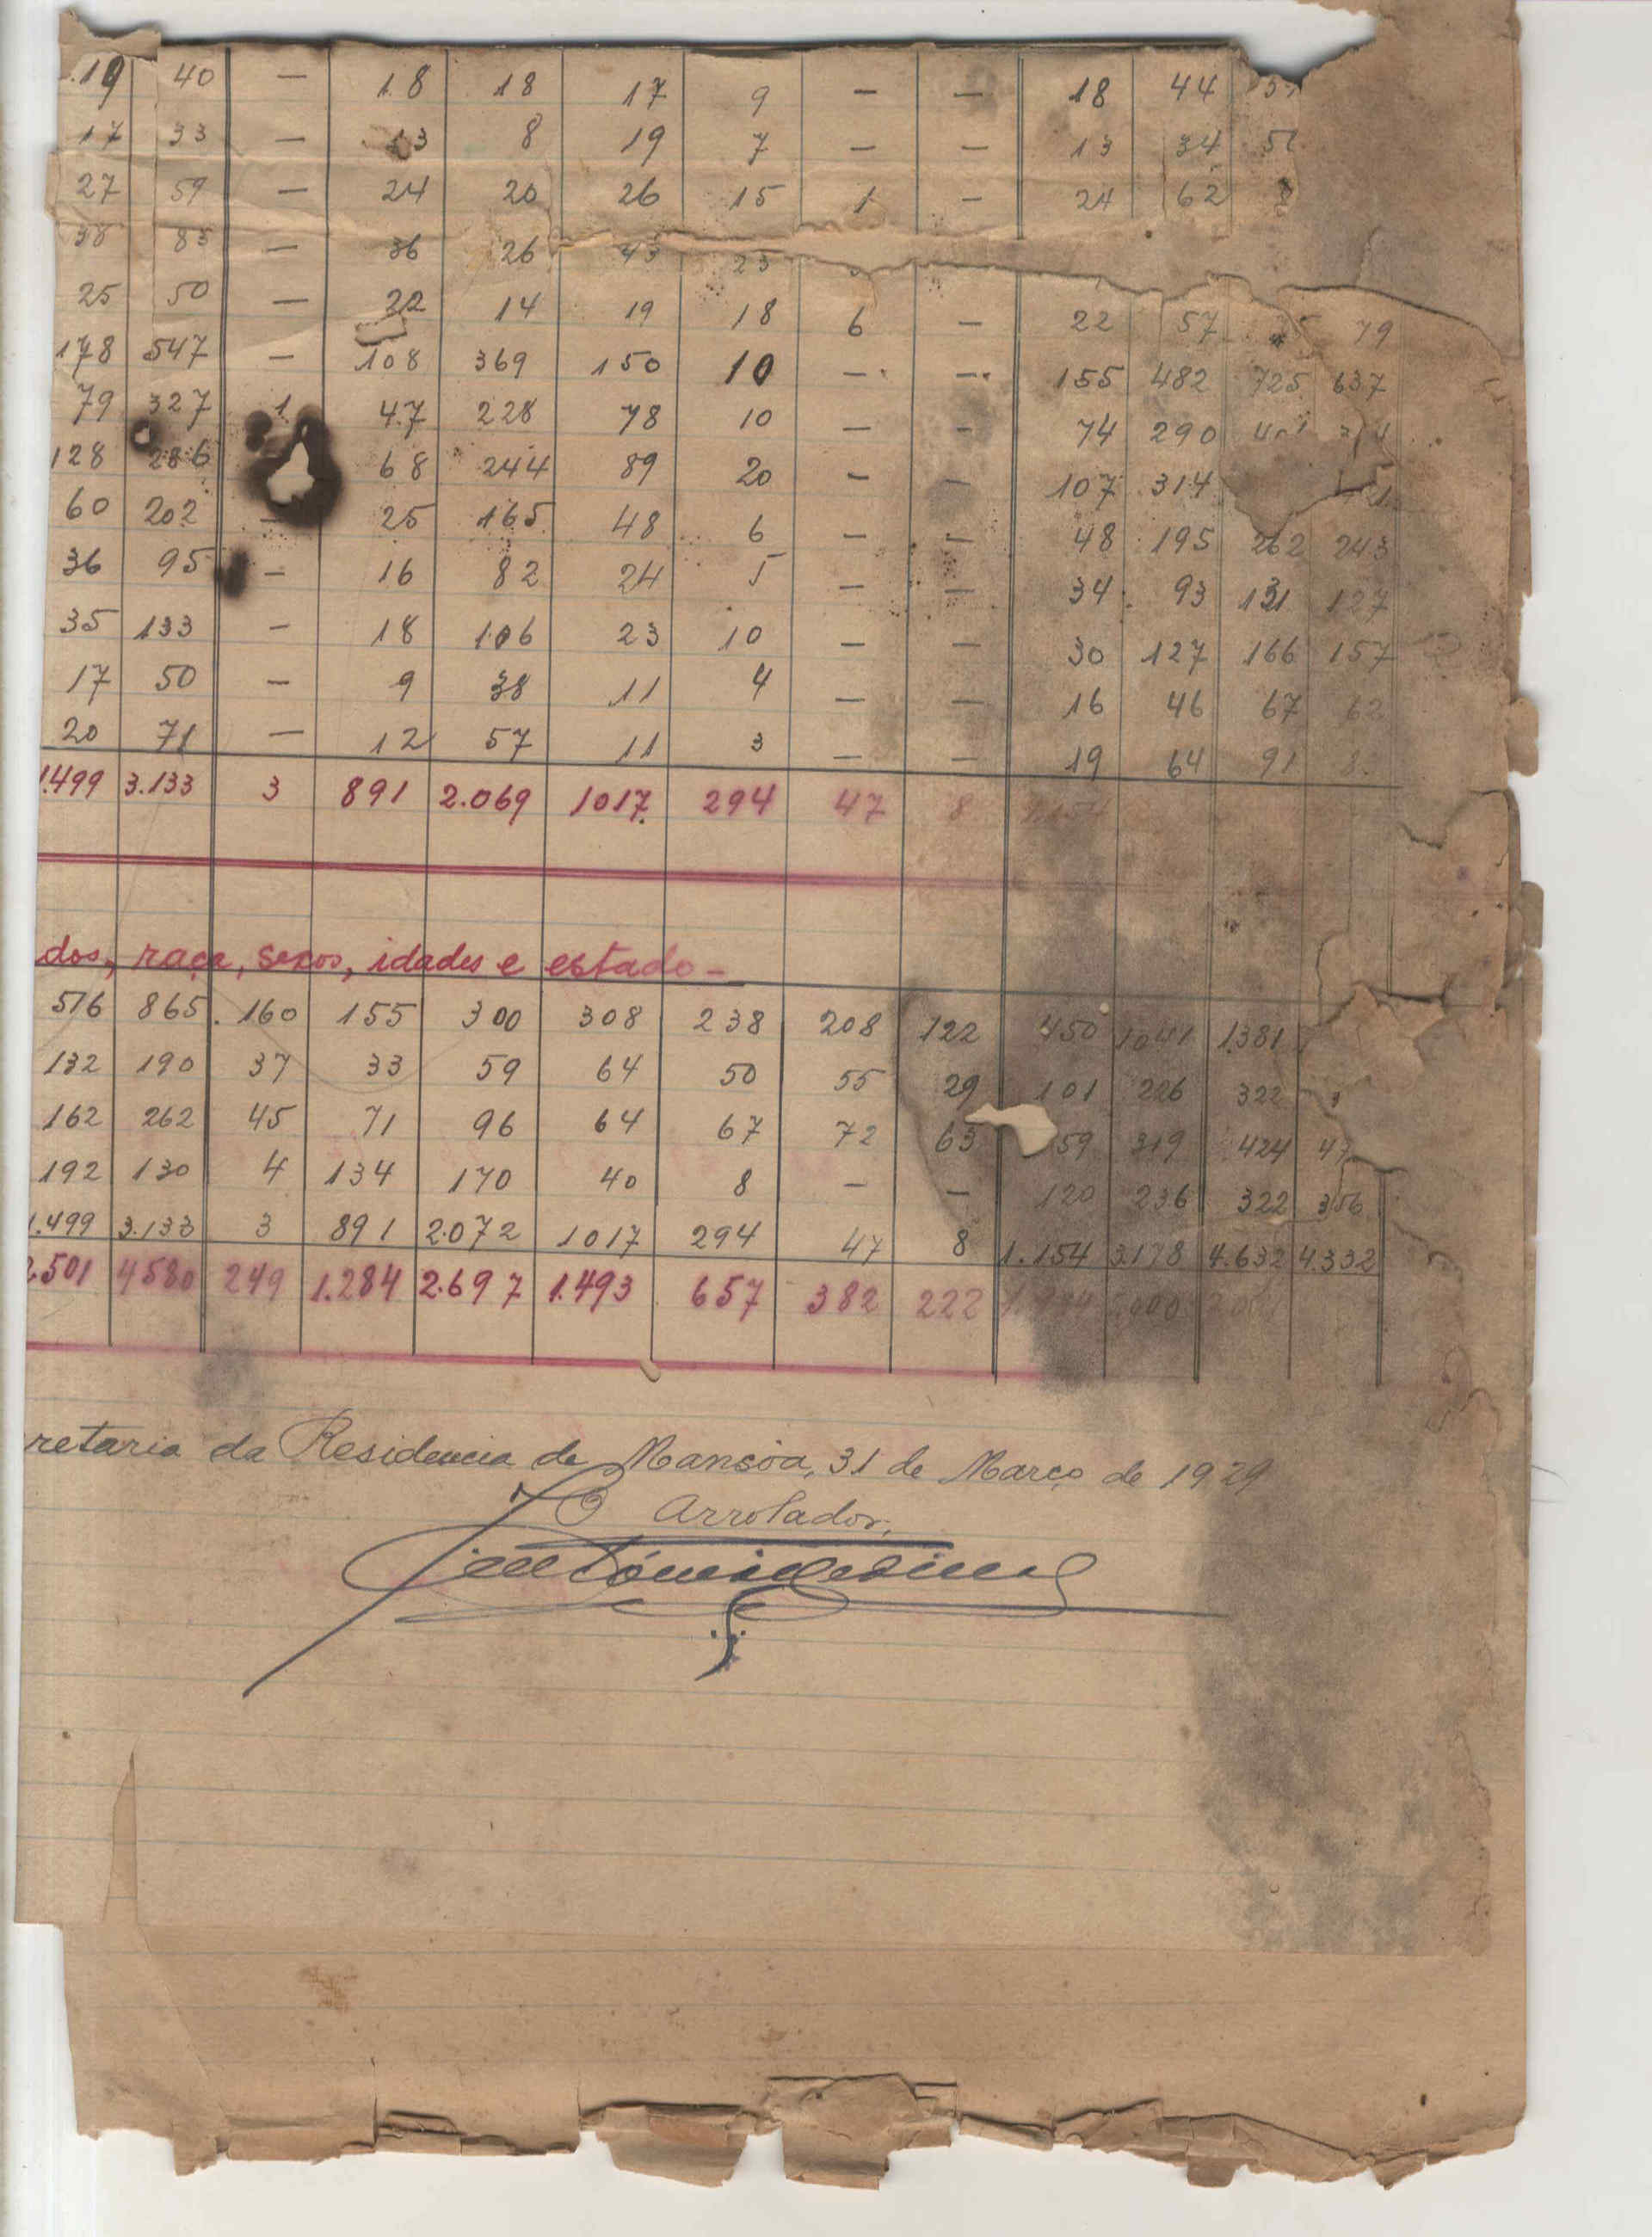 19 40 — 18 18 17 9 — — 18 44
17 33 — 13 8 19 7 — — 13 34
27 59 — 24 20 26 15 1 — 24 62
38 83 — 36 26 43 23
25 50 — 22 14 19 18 6 — 22 57 79
178 547 — 108 369 150 10 — — 155 482 725 637
79 327 1 47 228 78 10 — — 74 290
128 286 68 244 89 20 — — 107 314
60 202 — 25 165 48 6 — — 48 195 262 243
36 95 — 16 82 24 5 — — 34 93 131 127
35 133 — 18 106 23 10 — — 30 127 166 157
17 50 — 9 38 11 4 — — 16 46 67 62
20 71 — 12 57 11 3 — — 19 64 91
1.499 3.133 3 891 2.069 1017 294 47 8 1.154
dos, raça, sexos, idades e estado —
516 865 160 155 300 308 238 208 122 450 1041 1.381
132 190 37 33 59 64 50 55 29 101 226 322
162 262 45 71 96 64 67 72 63 59 319 424
192 130 4 134 170 40 8 — — 120 236 322 356
1.499 3.133 3 891 2.072 1017 294 47 8 1.154 3.178 4.632 4.332
2.501 4580 249 1.284 2.697 1.493 657 382 222
retaria da Residencia de Mansôa, 31 de Março de 1929
O Arrolador,